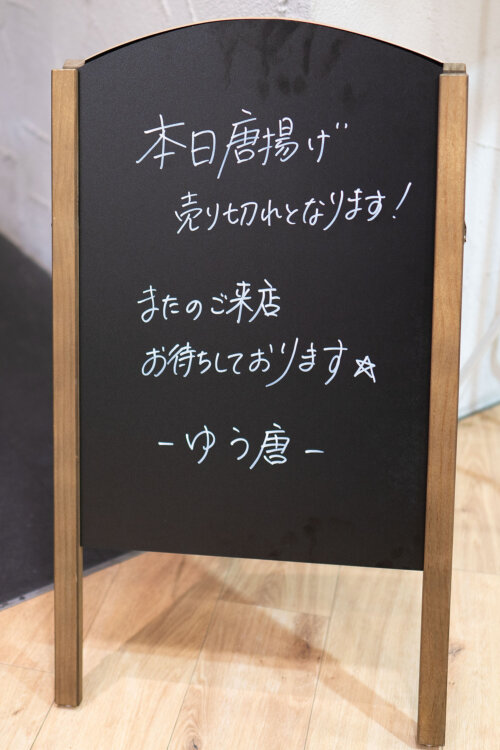 本日唐揚げ
売り切れとなります!
またのご来店
お待ちしております☆
-ゆう唐-